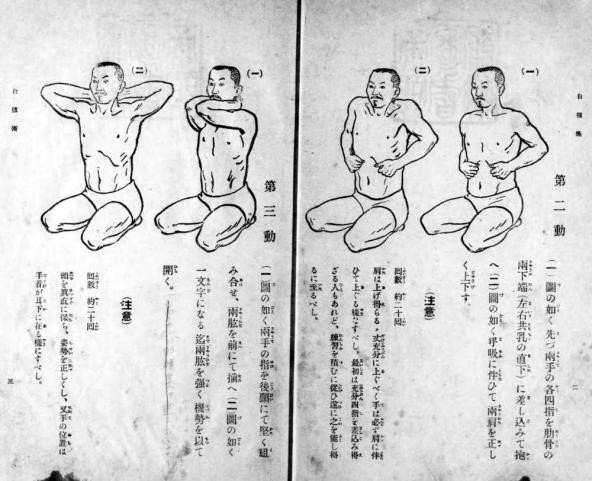 自彊術
第二動
(一)
(二)
(一)圖の如く先づ兩手の各四指を肋骨の
兩下端(左右共乳の直下)に差し込みて抱
へ(二)圖の如く呼吸に伴ひて兩肩を正し
く上下す。
(注意)
回數 約二十回
肩は上げ得らるゝ丈充分に上ぐべく手は必ず肩に伴
ひて上ぐる樣にすべし。最初は充分四指を差込み得
ざる人もあれど、練習を積むに從ひ遂に之を能し得
るに至るべし。
二
第三動
(一)
(二)
(一)圖の如く兩手の指を後頸にて堅く組
み合せ、兩肱を前にて揃へ(二)圖の如く
一文字になる迄兩肱を強く機勢を以て
開く。
(注意)
回數 約二十回
頭を眞直に保ち、姿勢を正しくし、又手の位置は
手首が耳下に在る樣にすべし。
自彊術
三